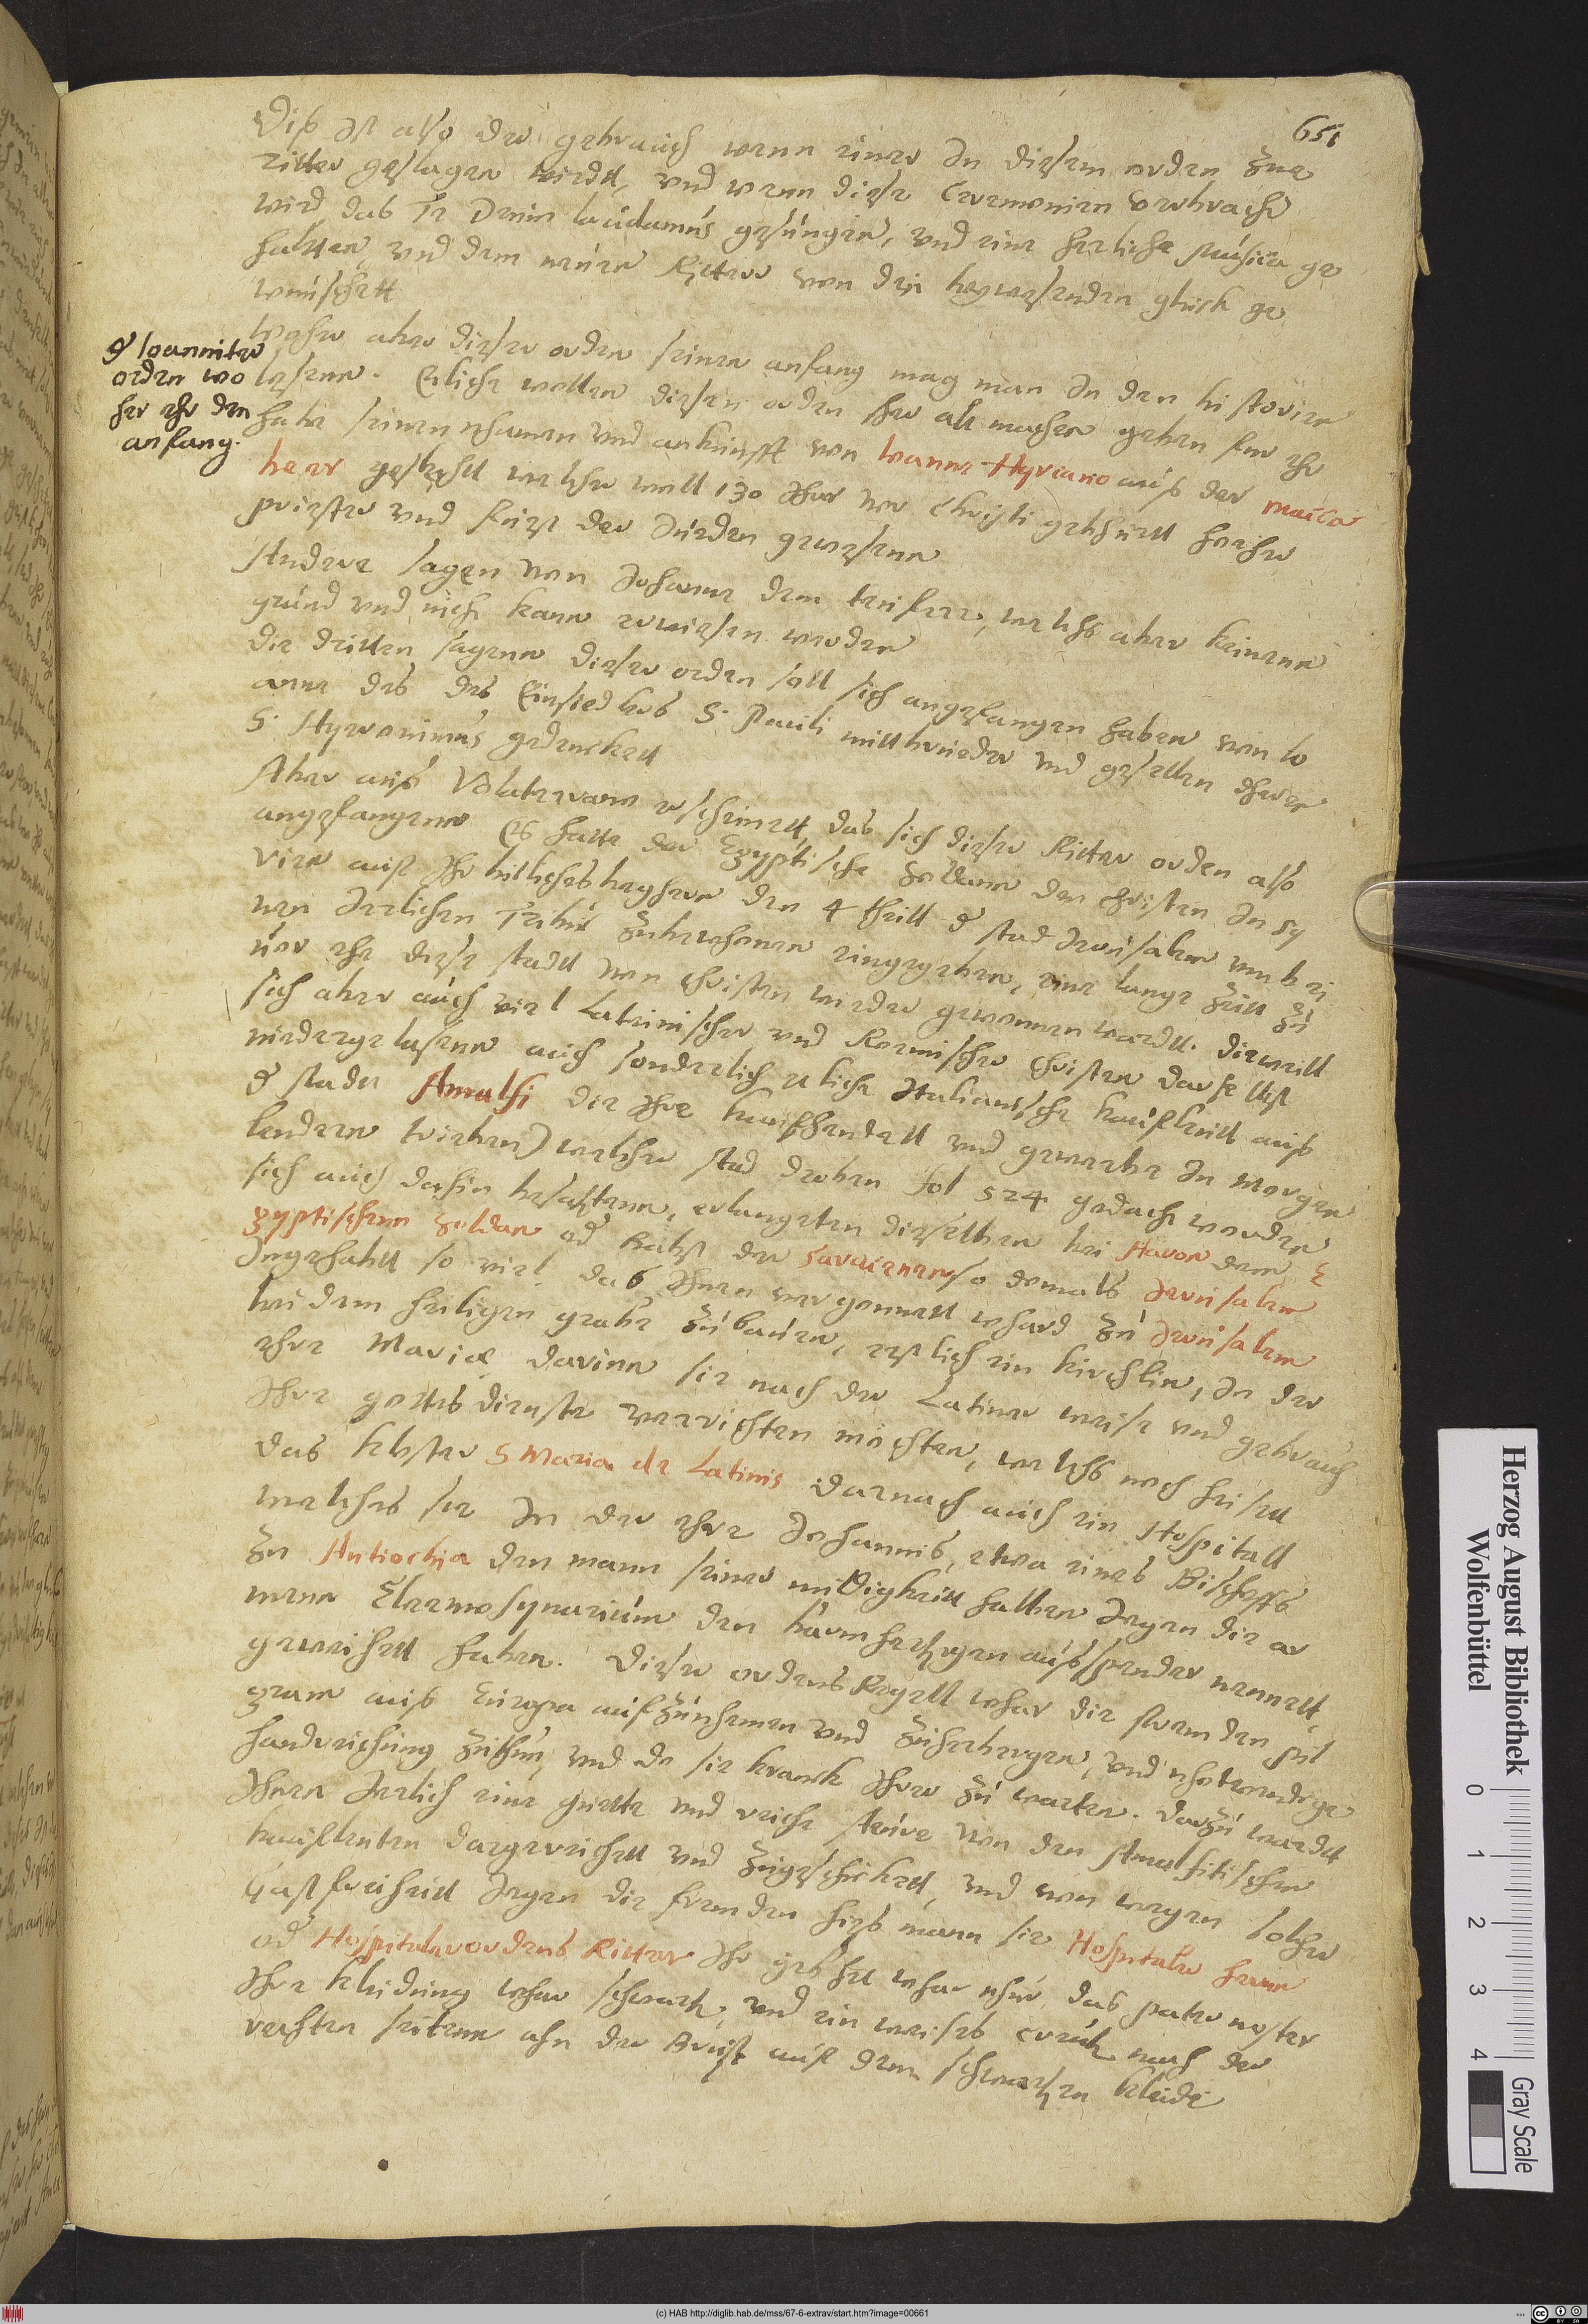 651
Diß ist also der gebrauch wann einer in diesem orden zue
ritter geslagen wirdt, und wenn diese Ceremonien verbracht
wird das Te Deum laudamus gesungen, und eine herliche Musica ge
haltten, und dem neuen Ritter von den beywesenden gluck ge
wunschett
Woher aber dieser orden seinen anfang mag man in den historien
lesenn. Etliche wollen diesen orden sehr alt machen geben fur ehr
habe seinen nhamen und ankunfft von Ioanne Hyrcano auß der Macca
beer geslecht welcher woll 130 Jhar vor Christi gebhurtt hoicher
priester und furst der Jueden gewesenn
Andere sagen von Johanne dem teufferr, welchs aber keinenn
grund und nicht kann erwiesen werden
die dritten sagenn dieser orden soll sich angefangen haben von Io
anne des des Einsiedlers S. Pauli mittbrueder und gesellen dheren
S. Hyeronimus gedenckett
Aber auß Volaterano erscheinett, das sich dieser Ritter orden also
angefangenn Es hatte der Egyptische Soldann den christen in Sy
rien auff Ihr bitlichs begheren den 4 theill der stad Jerusalem umb ei
nen Jerlichen Tribut zubewhonen eingegeben, eine lange zeitt zu
uor ehe diese stadt von christen wieder gewonnen wardt. dieweill
sich aber auch viel Lateinischer und Romischer christen daselbst
niedergelassenn auch sonderlich etliche Italianische kauffleutt auß
der stadt Amalfi die Ihre kauffhandell und gewerbe in morgen
lendern trieben) welcher stad droben fol 524 gedacht worden
sich auch dahin besatztenn, erlangeten dieselben bei Haron dem E
gyptischenn Soldan od Babst der Saracenen so domals Jerusalem
Ingehabtt so viel das Ihnen vergonnett whard zu Jerusalem
bei dem heiligen grabe zubauen, erstlich ein kirchlin, in der
ehre Mariæ darinn sie nach der Latiner weise und gebrauch
Ihre gottes dienste verrichten mochten, welchs noch heisett
das kloster S Maria de Latinis darnach auch ein Hospitall
welches sie In der ehre Johannis, etwa eines Bischoffs
zu Antiochia den mann seiner mildigkeitt halben Jegen die ar
menn Eleemosynarium den barmhertzigen außspender nennett,
geweihett haben. Dieser ordens Regell whar die frembden pil
gram auß Europa auffzunhemen und zuherbergen, und nhotwendige
handreichung zuthun, und do sie kranck Ihrer zu warten. dazu wardt
Ihnen Jerlich eine guette und reiche steure von den Amalfitischen
kauffleuten dargereichett und zugeschicktt, und von wegen solcher
Gastfreiheitt Jegen die frembden hies mann sie Hospitaler herrn
od Hospitalerordens Ritter Ihr gebhett whar nhur das pater noster
Ihre kleidung whar schwartz, und ein weises creutz nach der
rechten seitenn ahn der Brust auff dem schwartzen kleide
der Ioanniter
orden wo
her ehr den
anfang.
Herzog August Bibliothek
Wolfenbüttel
0 1 2 3 4
Gray Scale
(c) HAB http://diglib.hab.de/mss/67-6-extrav/start.htm?image=00661